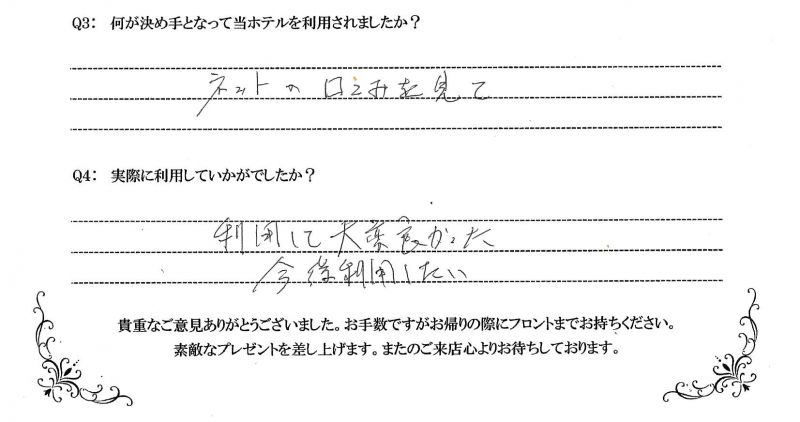 Q3: 何が決め手となって当ホテルを利用されましたか?
ネットの口こみを見て
Q4: 実際に利用していかがでしたか?
利用して大変良かった
今後利用したい
貴重なご意見ありがとうございました。お手数ですがお帰りの際にフロントまでお持ちください。
素敵なプレゼントを差し上げます。またのご来店心よりお待ちしております。